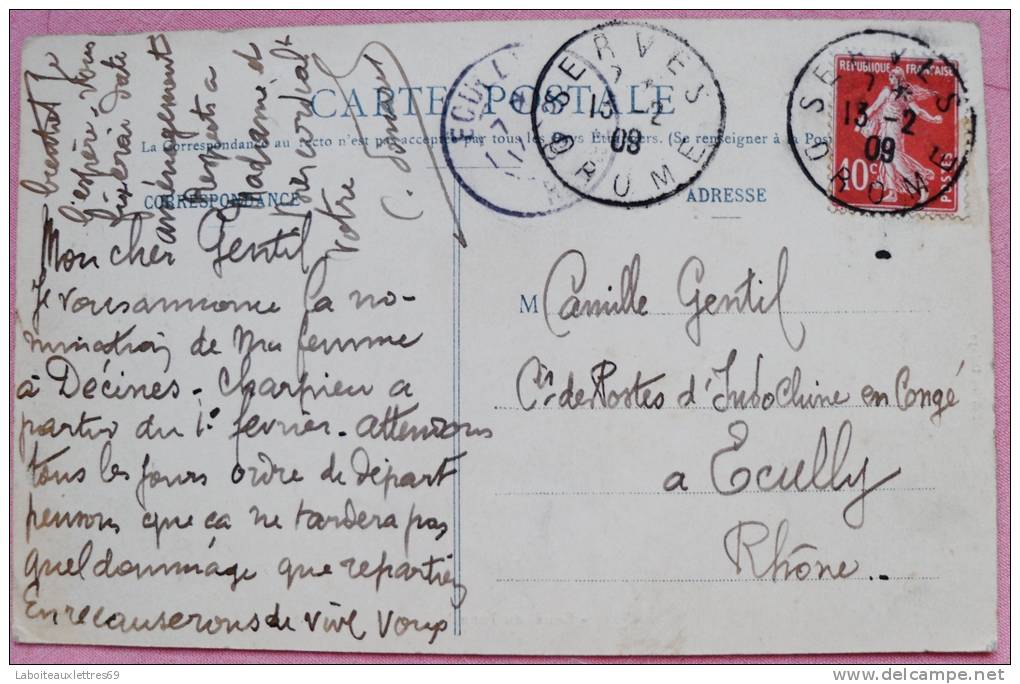 CARTE POSTALE
La Correspondance au recto n'est pas acceptée par tous les pays Étrangers. (Se renseigner à la Poste
CORRESPONDANCE
ADRESSE
Mon cher Gentil
Je vous annonce la no-
mination de ma femme
à Décines-Charpieu a
partir du 1er février. attendons
tous les jours ordre de départ
pensons que ça ne tardera pas
quel dommage que repartiez
En recauserons de vive voix
bientôt. Je
j'espère vous
aménagements
Respects a
Madame et
très cordialt
votre
M Camille Gentil
Cis de Postes d'Indochine en Congé
a Ecully
Rhône.
ECULLY
17
SERVES
13 -2
09
DROME
SERVES
13 -2
09
DROME
REPUBLIQUE FRANÇAISE
10 c
POSTES
Laboiteauxlettres69